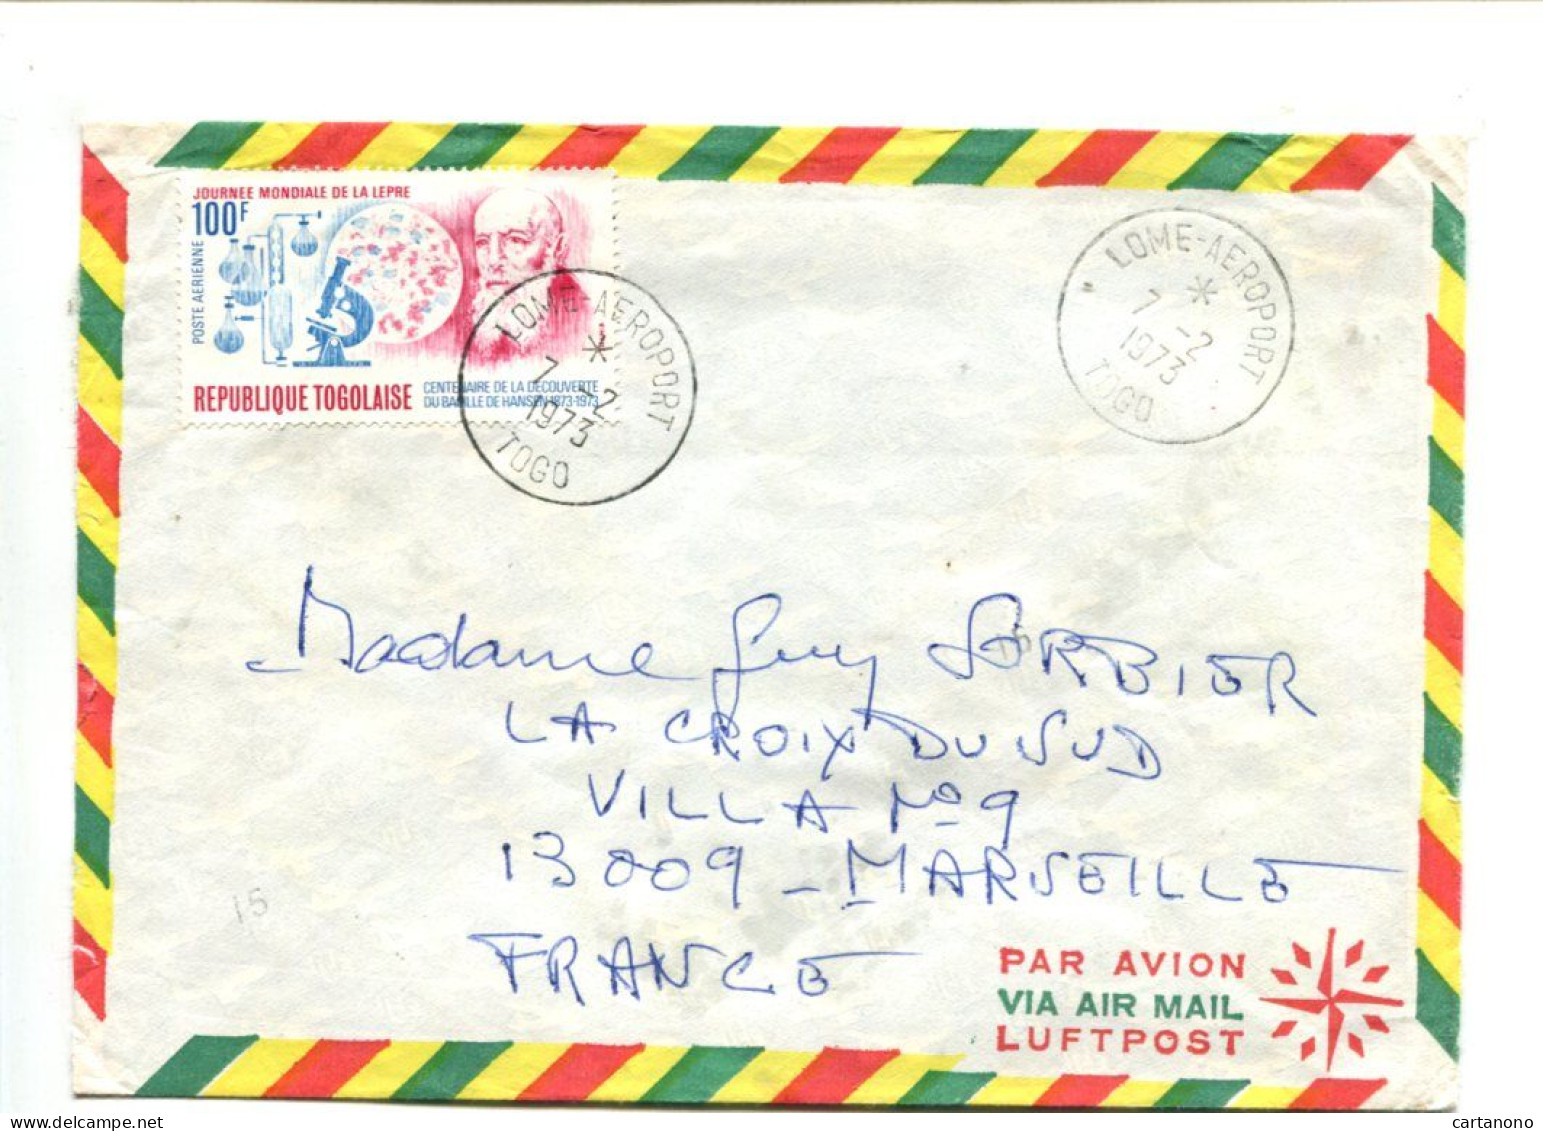 JOURNEE MONDIALE DE LA LEPRE
100F
POSTE AERIENNE
REPUBLIQUE TOGOLAISE
CENTENAIRE DE LA DECOUVERTE
DU BACILLE DE HANSEN 1873-1973
LOME-AEROPORT
*
7 -2
1973
TOGO
LOME-AEROPORT
*
7 -2
1973
TOGO
Madame Guy SORBIER
LA CROIX DU SUD
VILLA No 9
13009 - MARSEILLE
FRANCE
15
PAR AVION
VIA AIR MAIL
LUFTPOST
cartanono